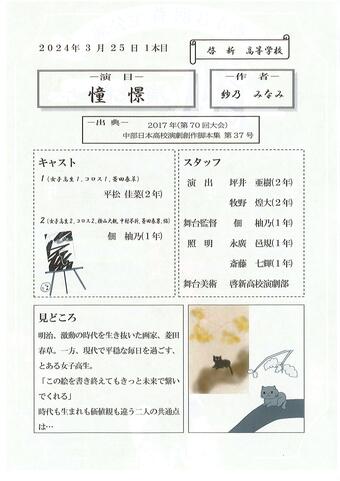 2024年3月25日 1本目
啓新 高等学校
―演 目―
憧 憬
―作 者―
紗乃 みなみ
―出 典―
2017年(第70回大会)
中部日本高校演劇創作脚本集 第37号
キャスト
1(女子高生1、コロス1、菱田春草)
平松 佳菜(2年)
2(女子高生2、コロス2、横山大観、中村不折、菱田春夏、猫)
佃 柚乃(1年)
スタッフ
演 出 坪井 亜樹(2年)
牧野 煌大(2年)
舞台監督 佃 柚乃(1年)
照 明 永廣 邑規(1年)
斎藤 七輝(1年)
舞台美術 啓新高校演劇部
見どころ
明治、激動の時代を生き抜いた画家、菱田
春草。一方、現代で平穏な毎日を過ごす、
とある女子高生。
「この絵を書き終えてもきっと未来で繋い
でくれる」
時代も生まれも価値観も違う二人の共通点
は…